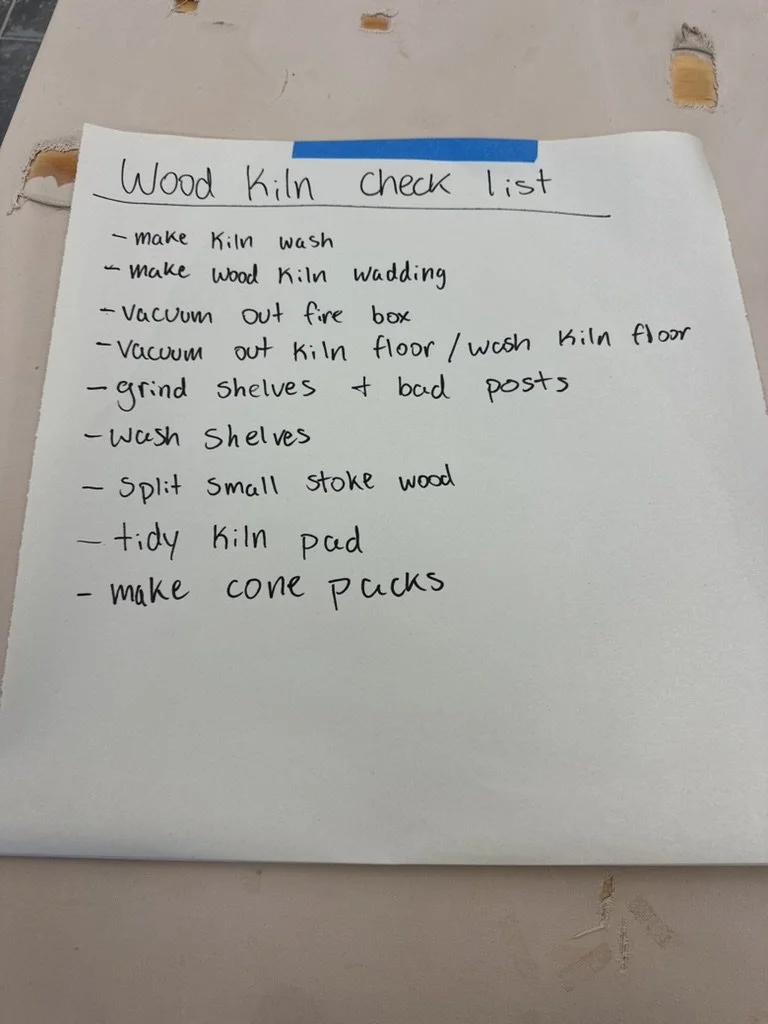 Wood Kiln check list
- make kiln wash
- make wood kiln wadding
- Vacuum out fire box
- Vacuum out kiln floor / wash kiln floor
- grind shelves + bad posts
- wash shelves
- split small stoke wood
- tidy kiln pad
- make cone packs